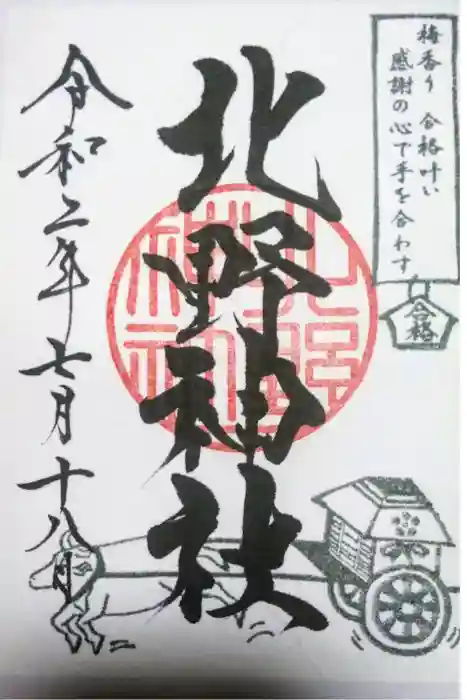 梅香り 合格叶い
感謝の心で手を合わす
合格
北野神社
北野神社
令和二年七月十八日